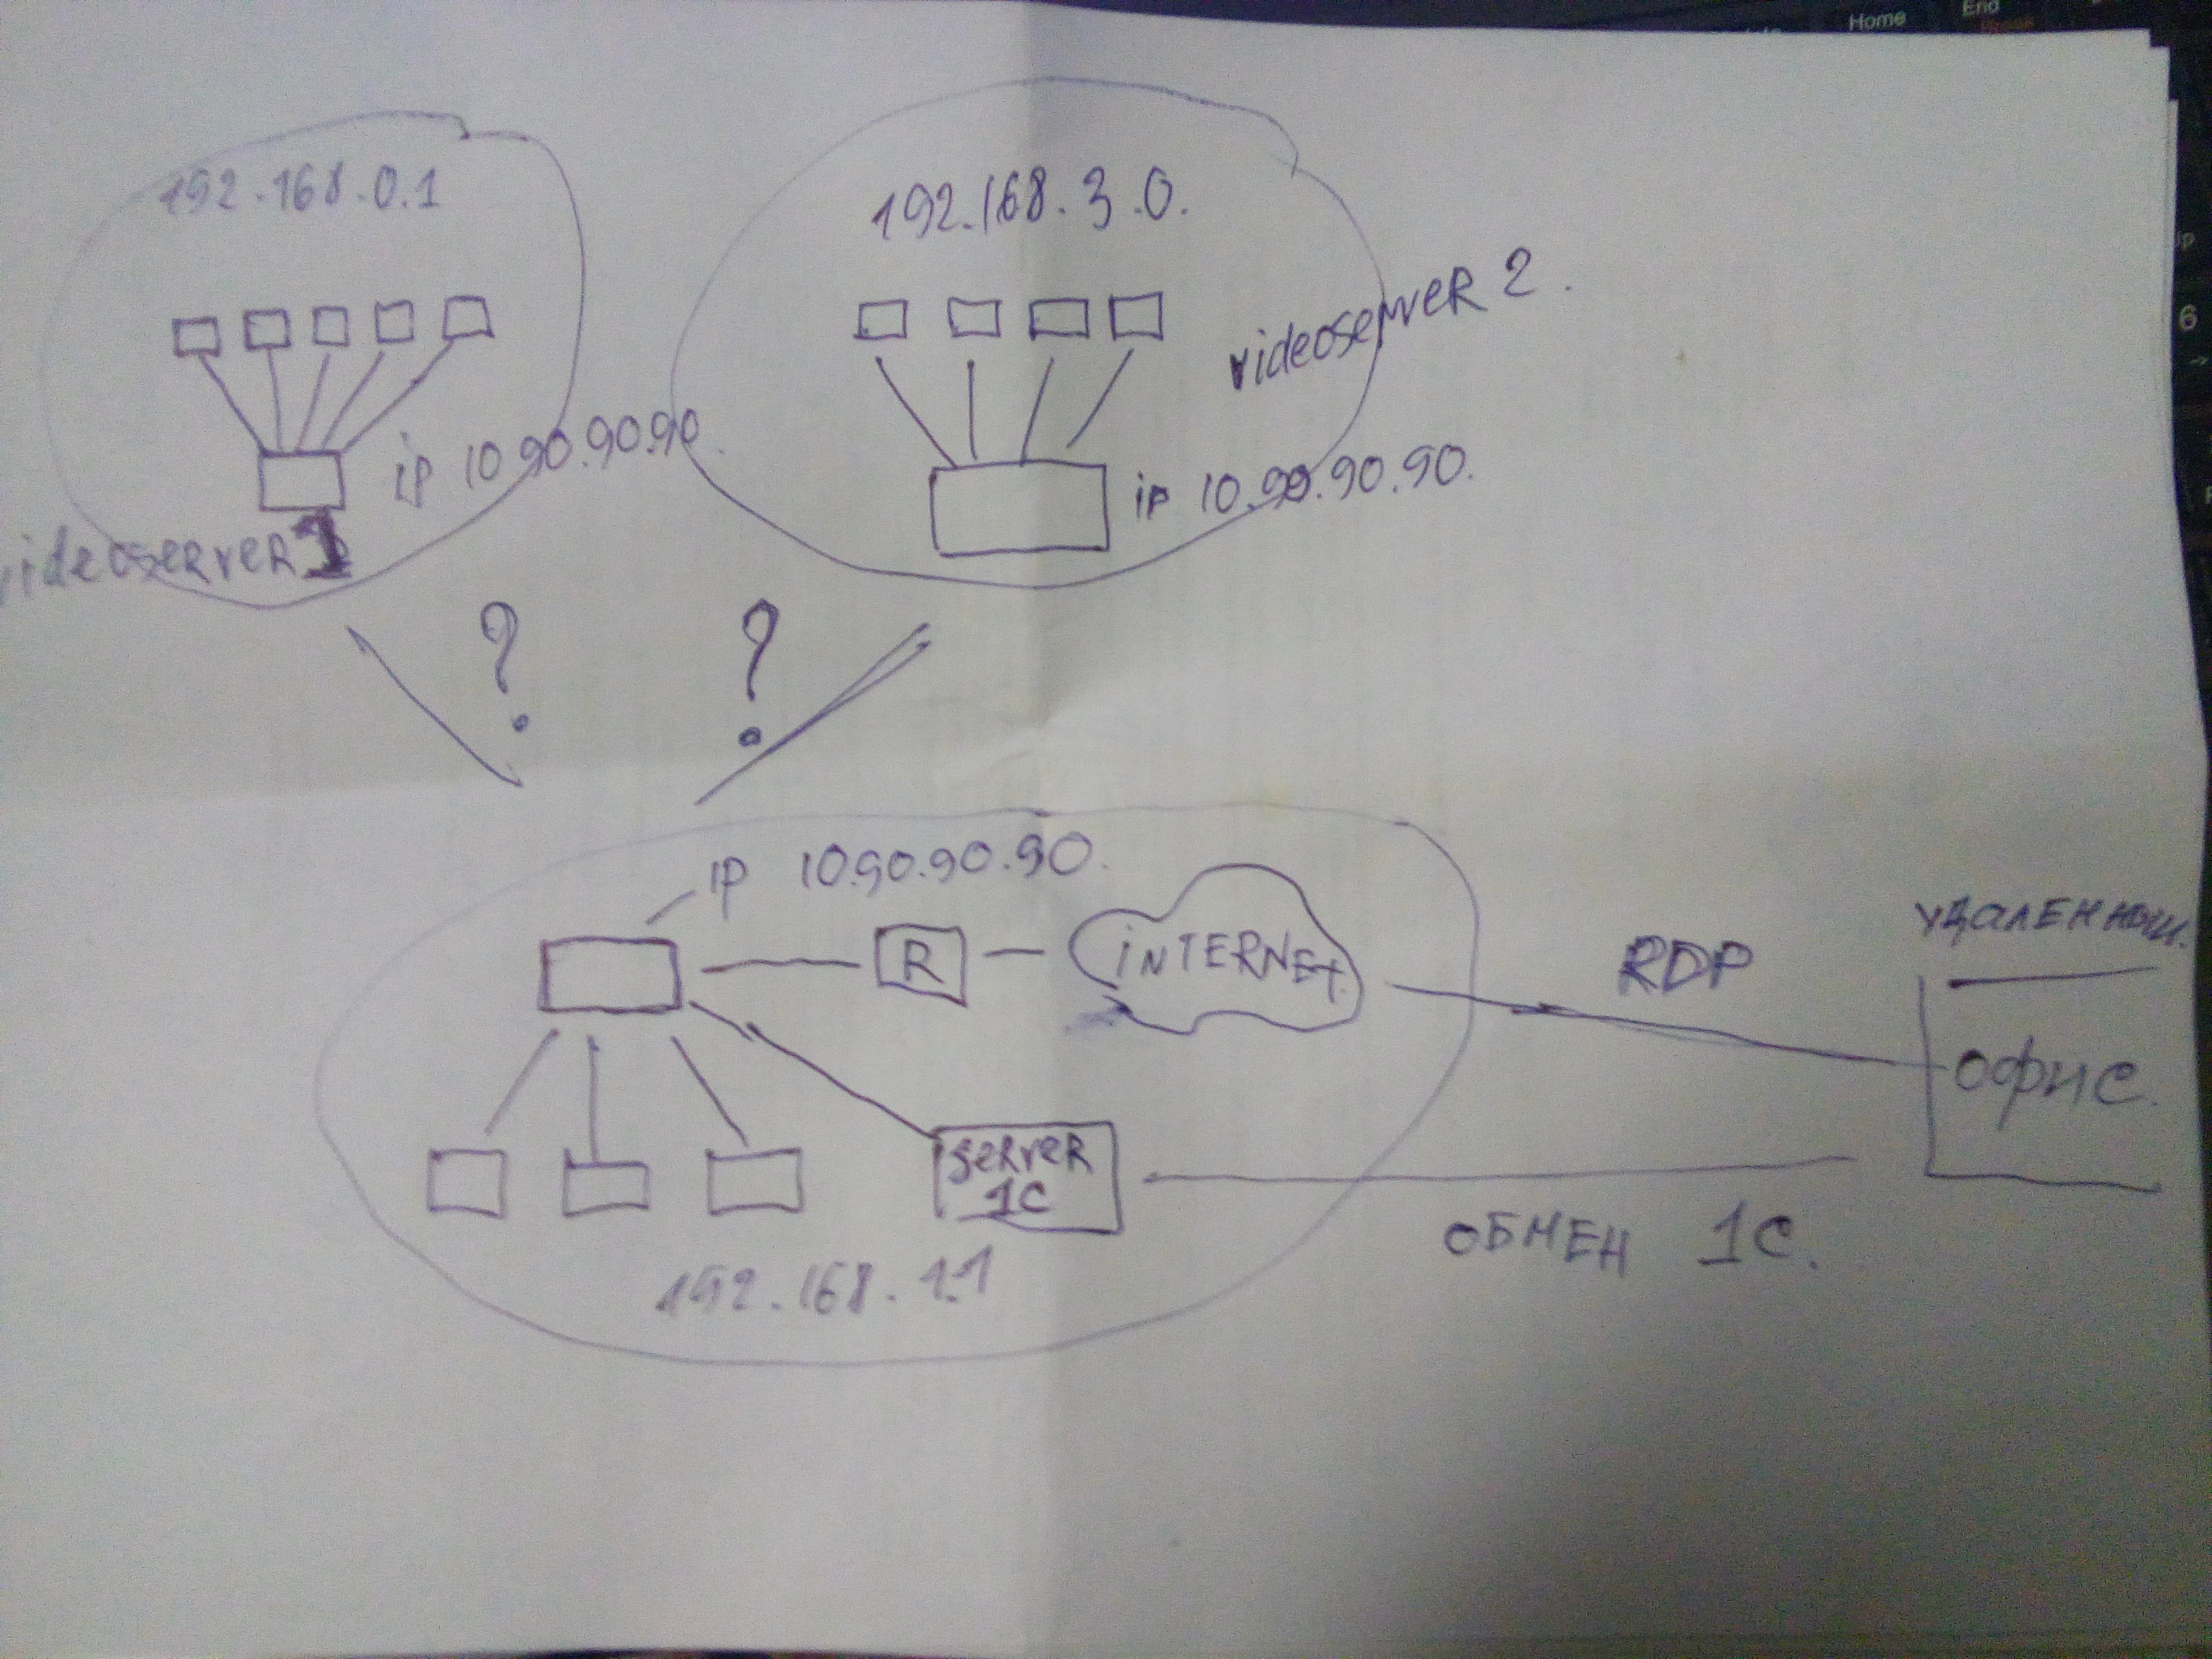 Home
End
6
192.168.0.1
192.168.3.0.
videoserveR 2.
ip 10.90.90.90.
ip 10.90.90.90.
videoserver 1
?
?
ip 10.90.90.90.
R
INTERNET.
RDP
офис.
server
1C
192.168.1.1
ОБМЕН 1С.